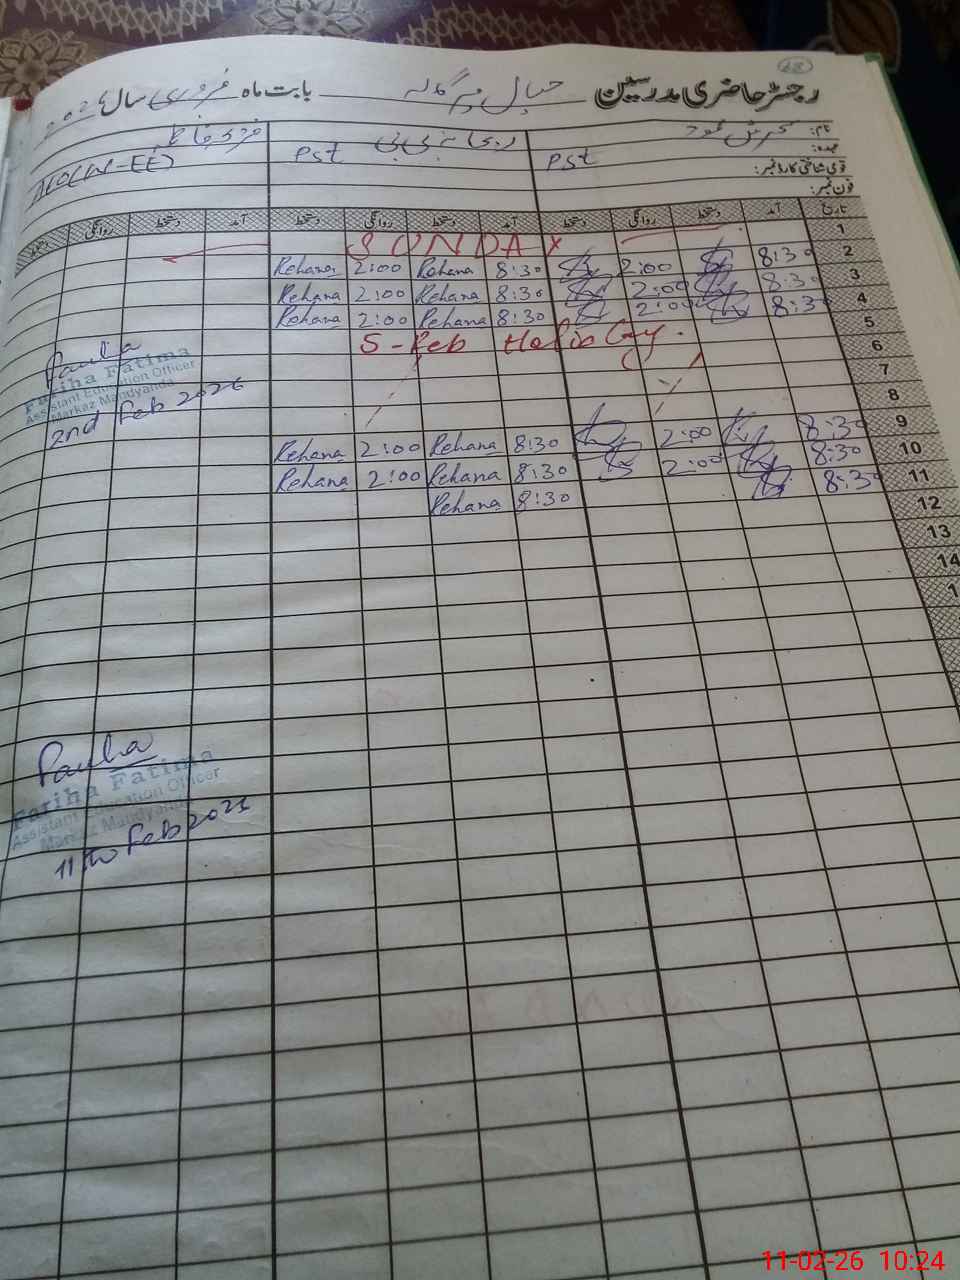 رجسٹر حاضری مدرسین بابت ماہ فروری سال
نام:
عہدہ: Pst Pst
قومی شناختی کارڈ نمبر:
فون نمبر:
تاریخ آمد دستخط روانگی دستخط آمد دستخط روانگی دستخط آمد دستخط روانگی دستخط
1 SUNDAY
2 8:30 2:00 8:30 Rehana 2:00 Rehana
3 8:30 2:00 8:30 Rehana 2:00 Rehana
4 8:30 2:00 8:30 Rehana 2:00 Rehana
5 5-Feb Holiday.
6
7
8
9 8:30 2:00 8:30 Rehana 2:00 Rehana
10 8:30 2:00 8:30 Rehana 2:00 Rehana
11 8:30 8:30 Rehana
12
13
14
1
Fariha Fatima
Assistant Education Officer
Markaz Mandyanda
2nd Feb 2026
Fariha Fatima
Assistant Education Officer
Markaz Mandyanda
11th Feb 2026
11-02-26 10:24